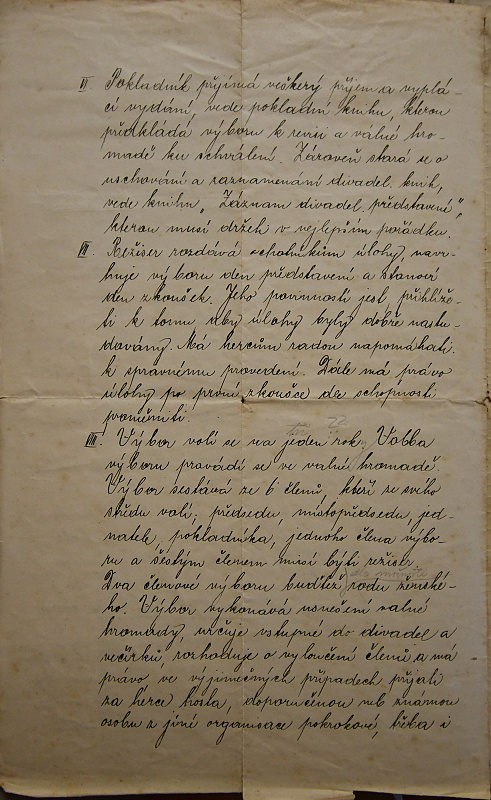 II. Pokladník přijímá veškerý příjem a vyplá-
cí vydání, vede pokladní knihu, kterou
předkládá výboru k revisi a valné hro-
madě ku schválení. Zároveň stará se o
uschování a zaznamenání divadel. knih,
vede knihu „Záznam divadel. představení",
kterou musí držeti v nejlepším pořádku.
Režiser rozdává ochotníkům úlohy, navr-
huje výboru den představení a stanoví
den zkoušek. Jeho povinností jest přihlíže-
ti k tomu aby úlohy byly dobře nastu-
dovány. Má hercům radou napomáhati
k správnému provedení. Dále má právo
úlohy po první zkoušce dle schopností
proměniti.
Výbor volí se na jeden rok. Volba
výboru provádí se ve valné hromadě.
Výbor sestává ze 6 členů, kteří ze svého
středu volí; předsedu, místopředsedu, jed-
natele, pokladníka, jednoho člena výbo-
ru a šestým členem musí býti režiser.
Dva členové výboru buďtež rodu ženské-
ho. Výbor vykonává usnešení valné
hromady, určuje vstupné do divadel a
večírků, rozhoduje o vyloučení členů a má
právo ve vyjímečných případech přijati
za herce hosta, doporučenou neb známou
osobu z jiné organisace pokrokové, třeba i